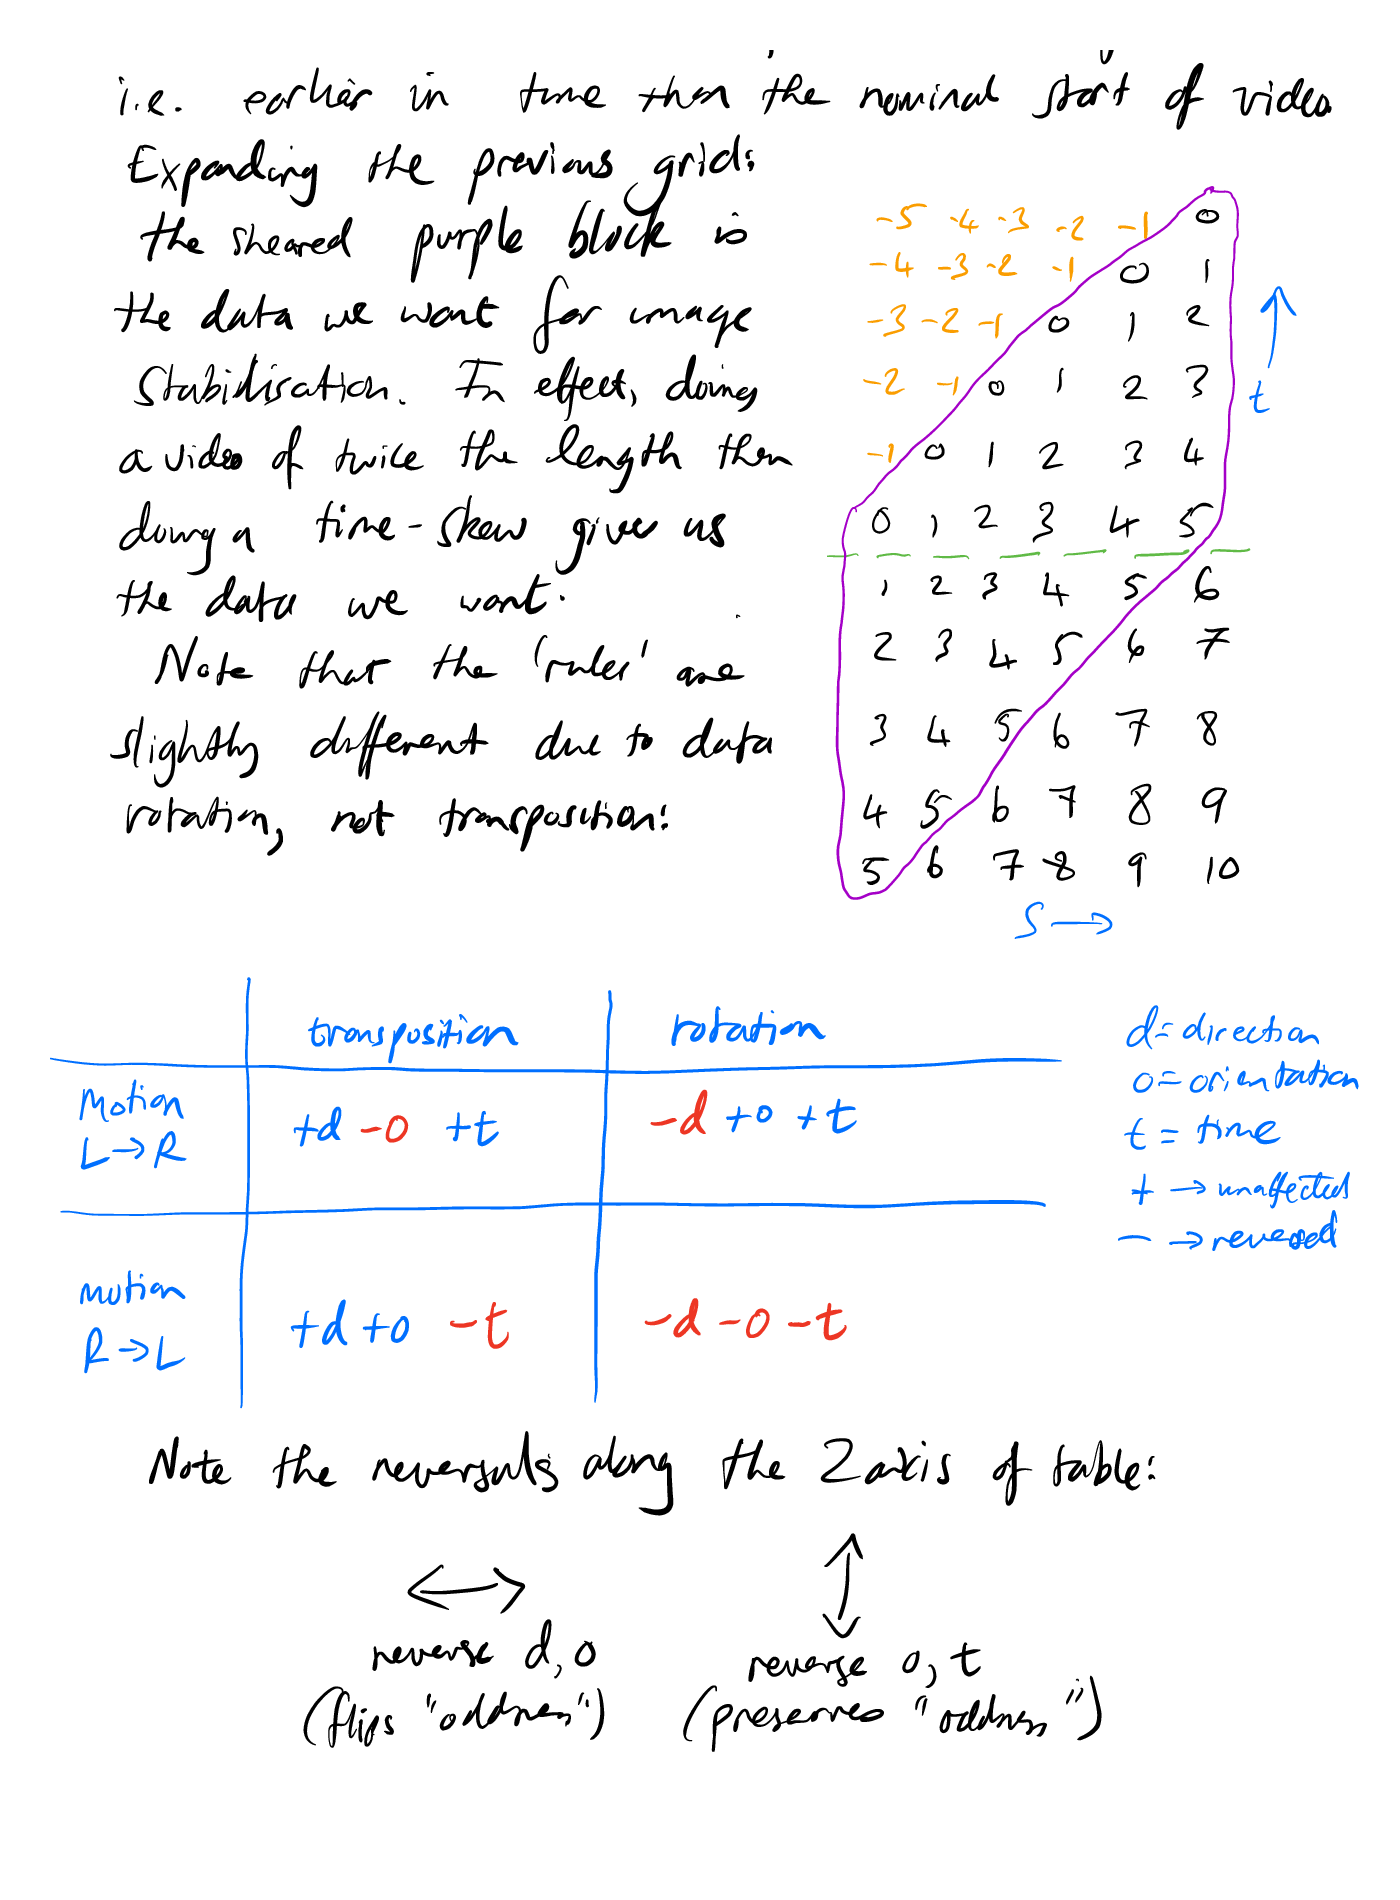 i.e. earlier in time than the nominal start of video.
Expanding the previous grid:
the sheared purple block is
the data we want for image
stabilisation. In effect, doing
a video of twice the length then
doing a time-skew gives us
the data we want.
Note that the 'rules' are
slightly different due to data
rotation, not transposition:
-5 -4 -3 -2 -1 0
-4 -3 -2 -1 0 1
-3 -2 -1 0 1 2
-2 -1 0 1 2 3
-1 0 1 2 3 4
0 1 2 3 4 5
1 2 3 4 5 6
2 3 4 5 6 7
3 4 5 6 7 8
4 5 6 7 8 9
5 6 7 8 9 10
↑
t
S →
transposition rotation
Motion
L→R
+d -o +t
-d +o +t
Motion
R→L
+d +o -t
-d -o -t
d = direction
o = orientation
t = time
+ → unaffected
- → reversed
Note the reversals along the 2 axis of table:
↔
reverse d, o
(flips "oddness")
↕
reverse o, t
(preserves "oddness")